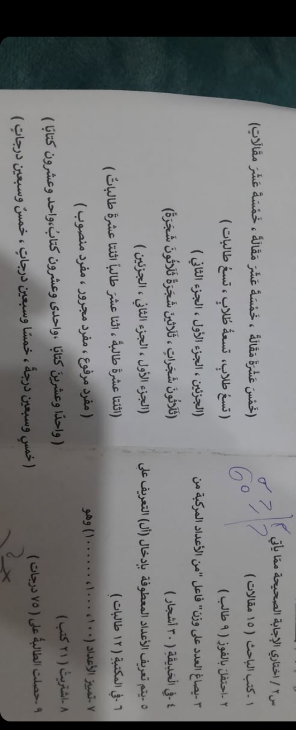 س٢ / اختاري الإجابة الصحيحة مما يأتي
١ - كتب الباحث ( ١٥ مقالات ) (خَمْسَ عَشْرَةَ مَقَالَةً ، خَمْسَةَ عَشَرَ مَقَالَةً ، خَمْسَةَ عَشَرَ مقالاتٍ)
٢ - احتفل بالفوز ( ٩ طالب ) ( تسعُ طلابٍ ، تسعةُ طلابٍ ، تسعُ طالبات )
٣ - يصاغ العدد على وزن " فاعل " من الأعداد المركبة من (الجزئين ، الجزء الأول ، الجزء الثاني )
٤ - في الحديقة ( ٣٠ أشجار ) (ثَلَاثُونَ شجراتٍ ، ثَلَاثِينَ شَجَرَةً ثَلَاثُونَ شَجَرَةً)
٥ - يتم تعريف الأعداد المعطوفة بإدخال (أل) التعريف على (الجزء الأول ، الجزء الثاني ، الجزئين )
٦ - في المكتبة ( ١٢ طالبات ) (اثنتا عشرة طالبة ، اثنا عشر طالبا اثنتا عشرة طالباتٌ )
٧ - تمييز الأعداد (١٠٠، ١٠٠٠، ١٠٠٠٠٠٠) وهو ( مفرد مرفوع ، مفرد مجرور ، مفرد منصوب )
٨ - اشتريتُ ( ٢١ كتب ) ( واحدًا وعشرين كتابًا ،واحدى وعشرون كتابٌ،واحد وعشرون كتابًا )
٩ - حصلت الطالبةُ على ( ٧٥ درجات ) (خمسٍ وسبعين درجةً ، خمسًا وسبعين درجاتٍ ، خمسٌ وسبعين درجاتٍ )